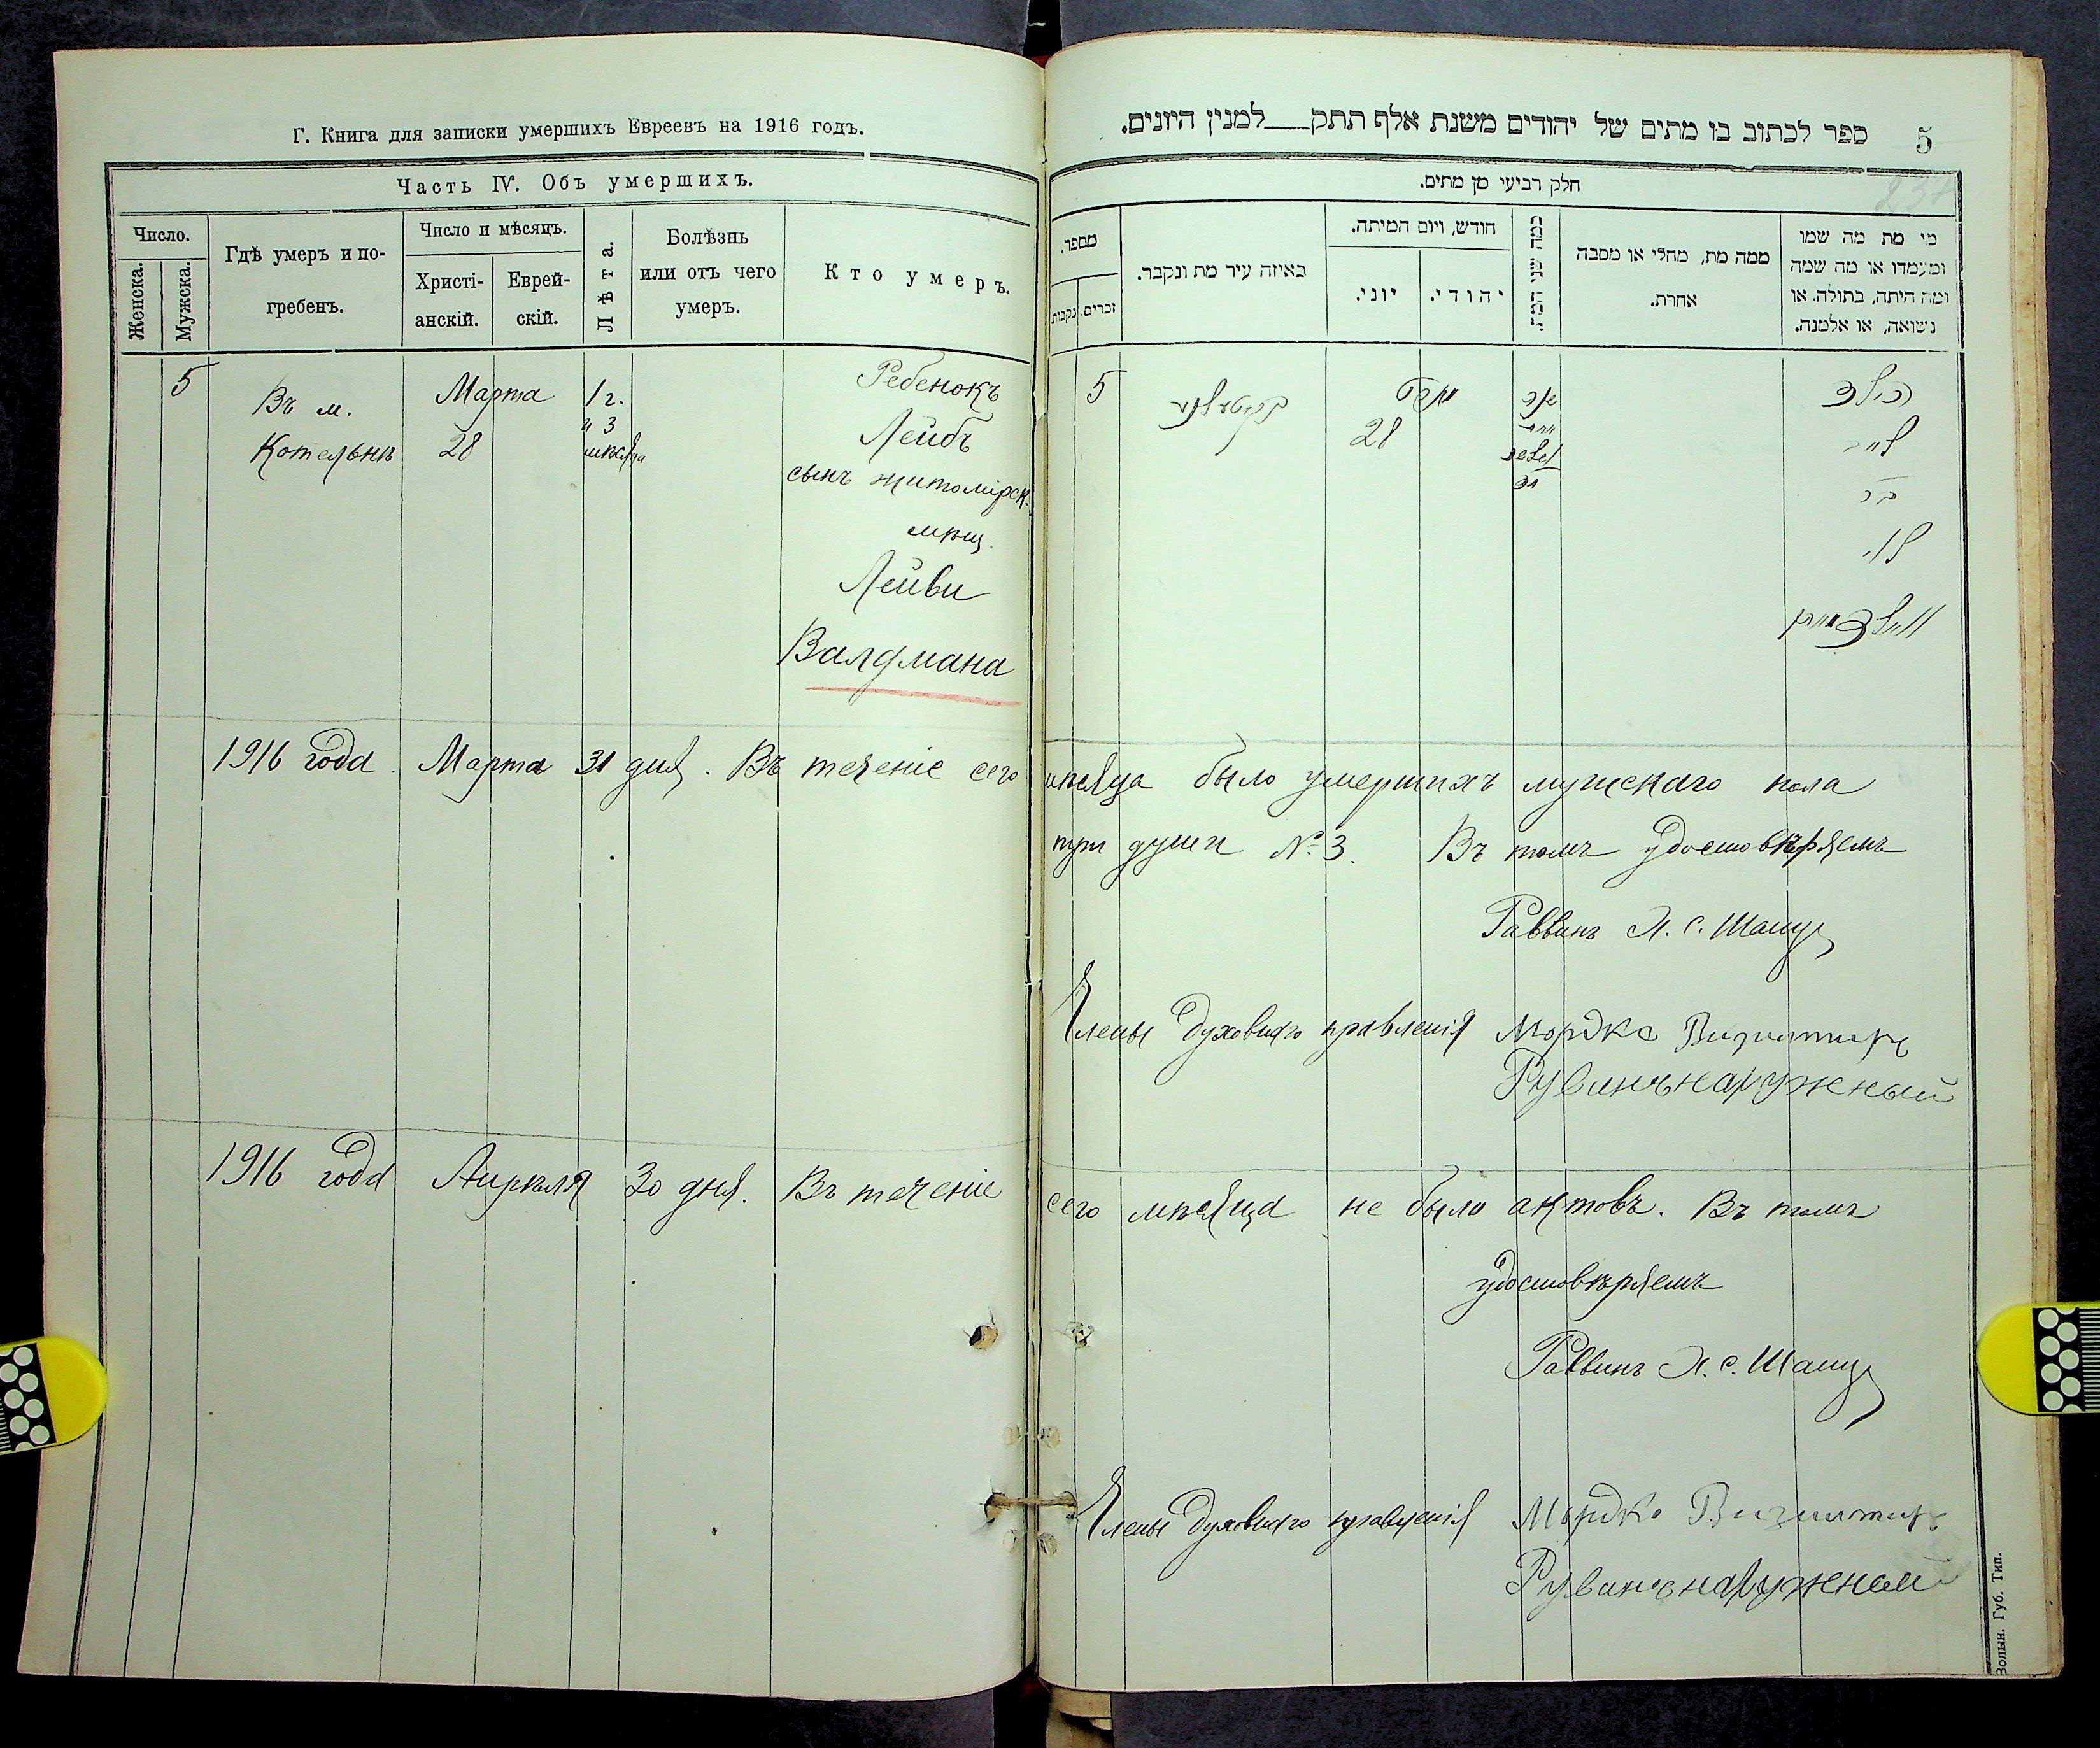 Г. Книга для записки умершихъ Евреевъ на 1916 годъ.
Часть IV. Объ умершихъ.
Число.
Женска.
Мужска.
Гдѣ умеръ и по-
гребенъ.
Число и мѣсяцъ.
Христі-
анскій.
Еврей-
скій.
Лѣта.
Болѣзнь
или отъ чего
умеръ.
Кто умеръ.
5
Въ м.
Котельнѣ
Марта
28
1 г.
и 3
мѣсяца
Ребенокъ
Лейбъ
сынъ житомірск.
мѣщ.
Лейви
Валдмана
1916 года. Марта 31 дня. Въ теченіе сего
1916 года Апрѣля 30 дня. Въ теченіе
ספר לכתוב בו מתים של יהודים משנת אלף תתק למנין היונים.
5
237
חלק רביעי מן מתים.
מספר.
זכרים.
נקבות
באיזה עיר מת ונקבר.
חודש, ויום המיתה.
יוני.
יהודי.
כמה שני המת
ממה מת, מחלי או מסבה
אחרת.
מי מת מה שמו
ומעמדו או מה שמה
ומה היתה, בתולה, או
נשואה, או אלמנה.
5
מרט
28
הילד
לייב
בר
לוי
וואלדמאן
мѣсяца было умершихъ мужскаго пола
три души № 3. Въ томъ удостовѣряемъ
Раввинъ
Члены Духовнаго правленія Мордко
Рувинъ Наружный
сего мѣсяца не было актовъ. Въ томъ
удостовѣряемъ
Раввинъ
Члены Духовнаго правленія Мордко
Рувинъ Наружный
Волын. Губ. Тип.